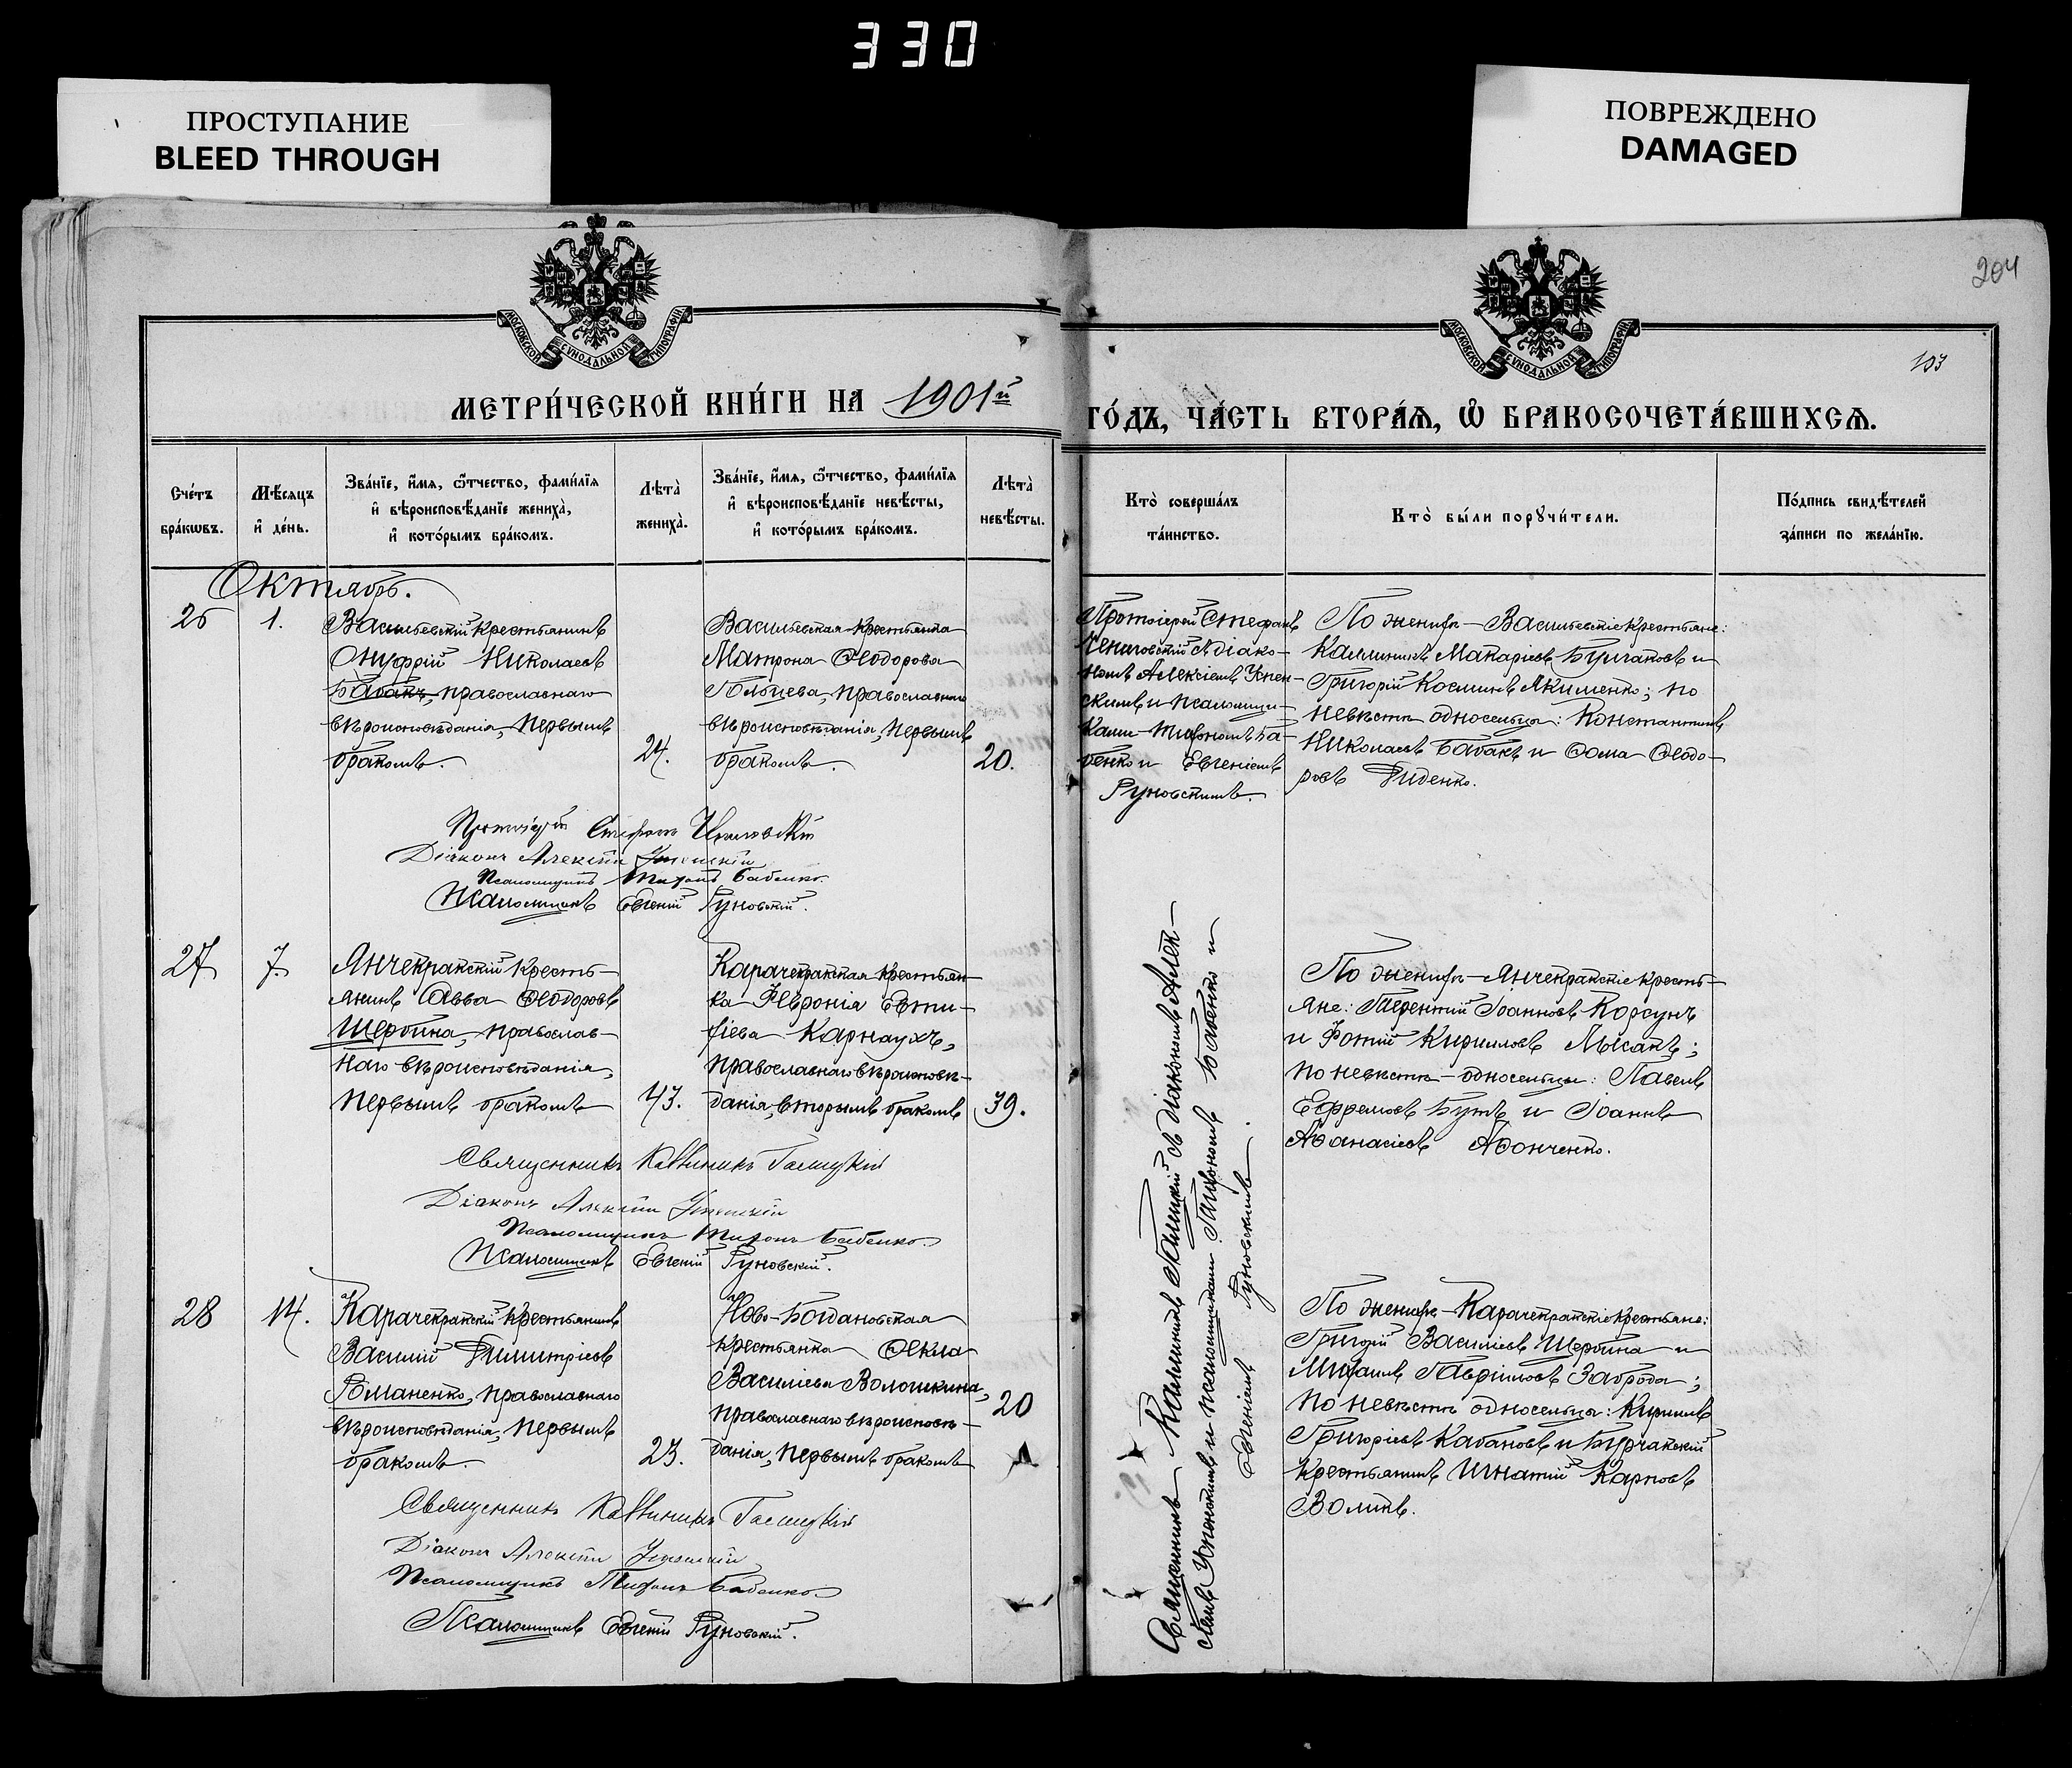 330
ПРОСТУПАНИЕ
BLEED THROUGH
ПОВРЕЖДЕНО
DAMAGED
204
103
МОСКОВСКОЙ СУНОДАЛЬНОЙ ТИПОГРАФІИ
МОСКОВСКОЙ СУНОДАЛЬНОЙ ТИПОГРАФІИ
МЕТРИ́ЧЕСКОЙ КНИ́ГИ НА 1901й
ГО́ДЪ, ЧА́СТЬ ВТОРА́Ѧ, Ѡ҆ БРАКОСОЧЕТА́ВШИХСѦ.
Сче́тъ
бра́кѡвъ.
Мѣ́сяцъ
и҆ де́нь.
Зва́нїе, и҆́мѧ, ѻ҆́тчество, фами́лїѧ
и҆ вѣроисповѣ́данїе жениха̀,
и҆ кото́рымъ бра́комъ.
Лѣта̀
жениха̀.
Зва́нїе, и҆́мѧ, ѻ҆́тчество, фами́лїѧ
и҆ вѣроисповѣ́данїе невѣ́сты,
и҆ кото́рымъ бра́комъ.
Лѣта̀
невѣ́сты.
Кто̀ соверша́лъ
та́инство.
Кто̀ бы́ли порꙋчи́тели.
По́дпись свидѣ́телей
за́писи по жела́нїю.
Октябрь.
26
1.
Васильевскій крестьянинъ
Онуфрій Николаевъ
Бабакъ, православнаго
вѣроисповѣданія, первымъ
бракомъ.
24.
Васильевская крестьянка
Матрона Ѳеодорова
православнаго
вѣроисповѣданія, первымъ
бракомъ.
20.
Протоіерей Стефанъ
съ діако-
номъ Алексіемъ Успен-
скимъ и псаломщи-
ками Тифономъ Ба-
бенко и Евгеніемъ
Руновскимъ.
По женихѣ – Васильевскіе крестьяне:
Каллиникъ Макаріевъ и
Григорій Косминъ Якименко; по
невѣстѣ односельцы: Константинъ
Николаевъ Бабакъ и Ѳома Ѳеодо-
ровъ Диденко.
Протоіерей Стефанъ
Діаконъ Алексій Успенскій
Псаломщикъ Тифонъ Бабенко.
Псаломщикъ Евгеній Руновскій.
27
7.
Янчекракскій кресть-
янинъ Савва Ѳеодоровъ
Щербина, православ-
наго вѣроисповѣданія,
первымъ бракомъ
43.
Карачекракская крестьян-
ка Февронія Евти-
хіева Карнаухъ,
православнаго вѣроисповѣ-
данія, вторымъ бракомъ
39.
По женихѣ – Янчекракскіе кресть-
яне: Терентій Іоанновъ Корсунъ
и Фотій Кирилловъ Лысакъ;
по невѣстѣ – односельцы: Павелъ
Ефремовъ Бутъ и Іоаннъ
Аѳанасіевъ Аѳонченко.
Священникъ Каллиникъ Галицкій
Діаконъ Алексій Успенскій
Псаломщикъ Тифонъ Бабенко
Псаломщикъ Евгеній Руновскій.
Священникъ Каллиникъ Галицкій съ діакономъ Алек-
сіемъ Успенскимъ и псаломщиками Тифономъ Бабенко и
Евгеніемъ Руновскимъ.
28
14.
Карачекракскій крестьянинъ
Василій Димитріевъ
Романенко, православнаго
вѣроисповѣданія, первымъ
бракомъ.
23.
Ново-Богдановская
крестьянка Ѳекла
Василіева Волошкина,
православнаго вѣроисповѣ-
данія, первымъ бракомъ
20
По женихѣ – Карачекракскіе крестьяне:
Григорій Василіевъ Щербина и
Михаилъ Гавріиловъ Заброда;
по невѣстѣ односельцы: Кириллъ
Григорієвъ Кабановъ и Бурчакскій
крестьянинъ Игнатій Карповъ
Воликъ.
Священникъ Каллиникъ Галицкій
Діаконъ Алексій Успенскій
Псаломщикъ Тифонъ Бабенко
Псаломщикъ Евгеній Руновскій.